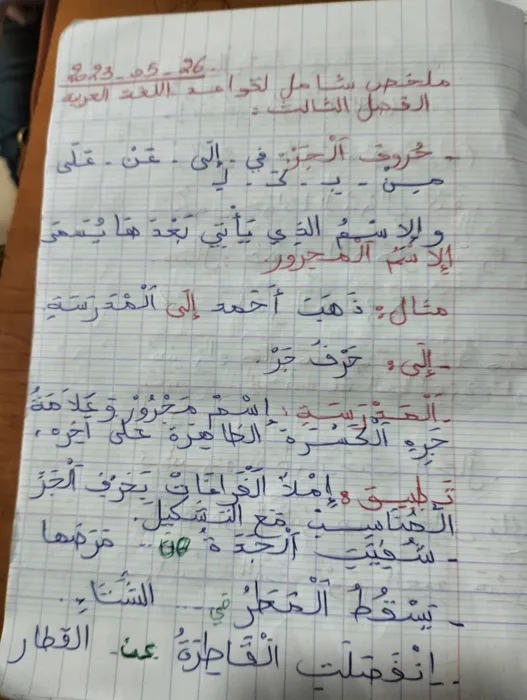 2023-05-26
ملخص شامل لقواعد اللغة العربية
الفصل الثالث:
- حُروفُ اَلْجَرِّ: في - إِلَى - عَنْ - عَلَى
مِنْ - بِـ - كَـ - لِـ
وَ الِاسْمُ الذِي يَأْتِي بَعْدَهَا يُسَمَى
اَلِاسْمُ اَلْمَجْرُورْ.
مثال: ذَهَبَ أَحْمَد إِلَى اَلْمَدْرَسَةِ.
- إِلَى: حَرْفُ جَرّْ.
- اَلْمَدْرَسَةِ: إِسْمْ مَجْرُورْ وَعَلَامَةُ
جَرِهِ اَلْكَسْرَةُ الظَاهِرَةُ عَلَى آخِرِهِ.
تَطبيق: إِمْلَأْ الْفَرَاغَاتْ بِحَرْفِ اَلْجَرِّ
اَلْمُنَاسِبْ مَعَ التَشْكِيلْ.
- شُفِيَتِ اَلْجَدَةُ مِنْ... مَرَضِهَا
- يَسْقُطُ اَلْمَطَرُ في... الشِّتَاءِ.
- اِنْفَصَلَتِ الْقَاطِرَةُ عن.. القطار